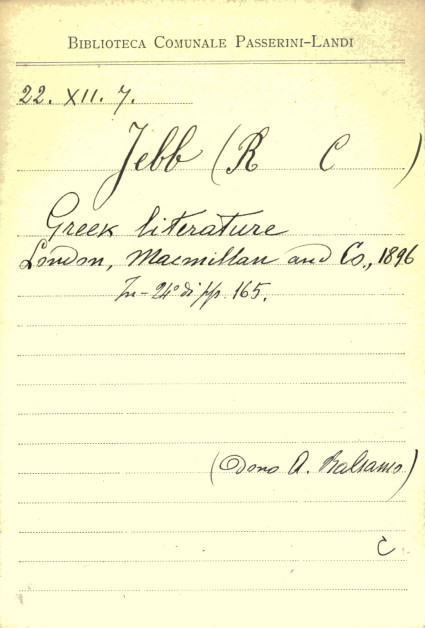 BIBLIOTECA COMUNALE PASSERINI-LANDI
22. XII. 7.
Jebb (R C )
Greek literature
London, Macmillan and Co., 1896
In-24° di pp. 165.
(Dono A. Balsamo)
C